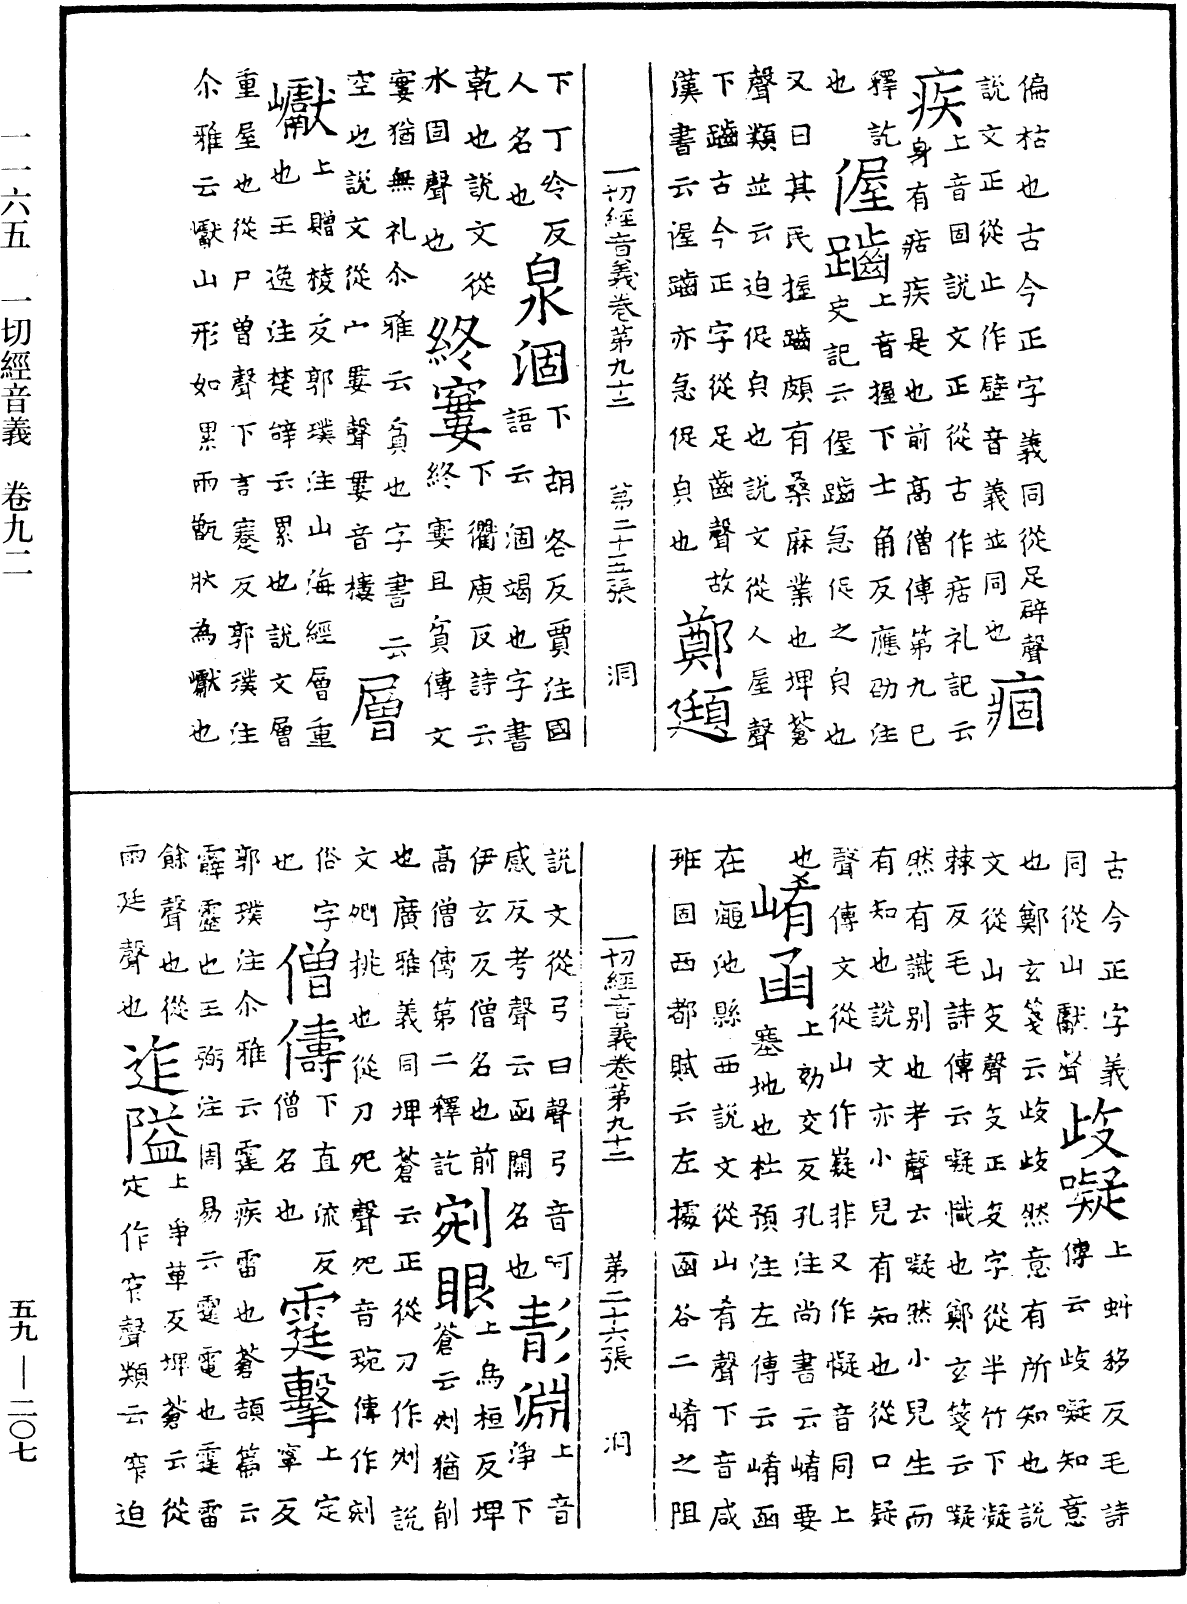 偏枯也古今正字義同從足辟聲痼
說文正從止作壁音義並同也
疾上音固說文正從古作𤶜礼記云
身有痁疾是也前高僧傳第九巳
釋訖偓䠱上音握下士角反應劭注
史記云偓䠱急促之皃也
又曰其民握䠱頗有桑麻業也埤蒼
聲類並云迫促皃也說文從人屋聲
下䠱古今正字從足齒聲故鄭頲
漢書云偓䠱亦急促皃也
一切經音義卷第九十二 第二十五張 洞
下丁冷反泉涸下胡各反賈注國
人名也語云涸竭也字書
乾也說文從終窶下衢庾反詩云
水固聲也終窶且貧傳文
窶猶無礼尒雅云貧也字書云層
空也說文從宀婁聲婁音樓
巘上贈棱反郭璞注山海經層重
也王逸注楚辭云累也說文層
重屋也從尸曾聲下言蹇反郭璞注
尒雅云巘山形如累兩甑狀為巘也
古今正字義歧嶷上蚑移反毛詩
同從山獻聲傳云歧嶷知意
也鄭玄箋云歧歧然意有所知也說
文從山支聲支正支字從半竹下凝
棘反毛詩傳云嶷懺也鄭玄箋云嶷
然有識別也考聲云嶷然小兒生而
有知也說文亦小兒有知也從口疑
聲傳文從山作嶷非又作懝音同上
也崤函上効交反孔注尚書云崤要
塞地也杜預注左傳云崤函
在澠池縣西說文從山肴聲下音咸
班固西都賦云左據函谷二崤之阻
一切經音義卷第九十二 第二十六張 洞
說文從弓曰聲弓音呵彭淵上音
感反考聲云函關名也淨下
伊玄反僧名也前剜眼上烏桓反埤
高僧傳第二釋訖蒼云剜猶削
也廣雅義同埤蒼云正從刀作剜說
文剜挑也從刀夗聲夗音琬傳作剜
俗字僧儔下直流反霆擊上定
也僧名也寧反
郭璞注尒雅云霆疾雷也蒼頡篇云
霹靂也王弼注周易云霆電也霆雷
餘聲也從迮隘上爭革反埤蒼云從
雨廷聲也定作窄聲類云窄迫
一一六五 一切經音義 卷九二
五九—二〇七